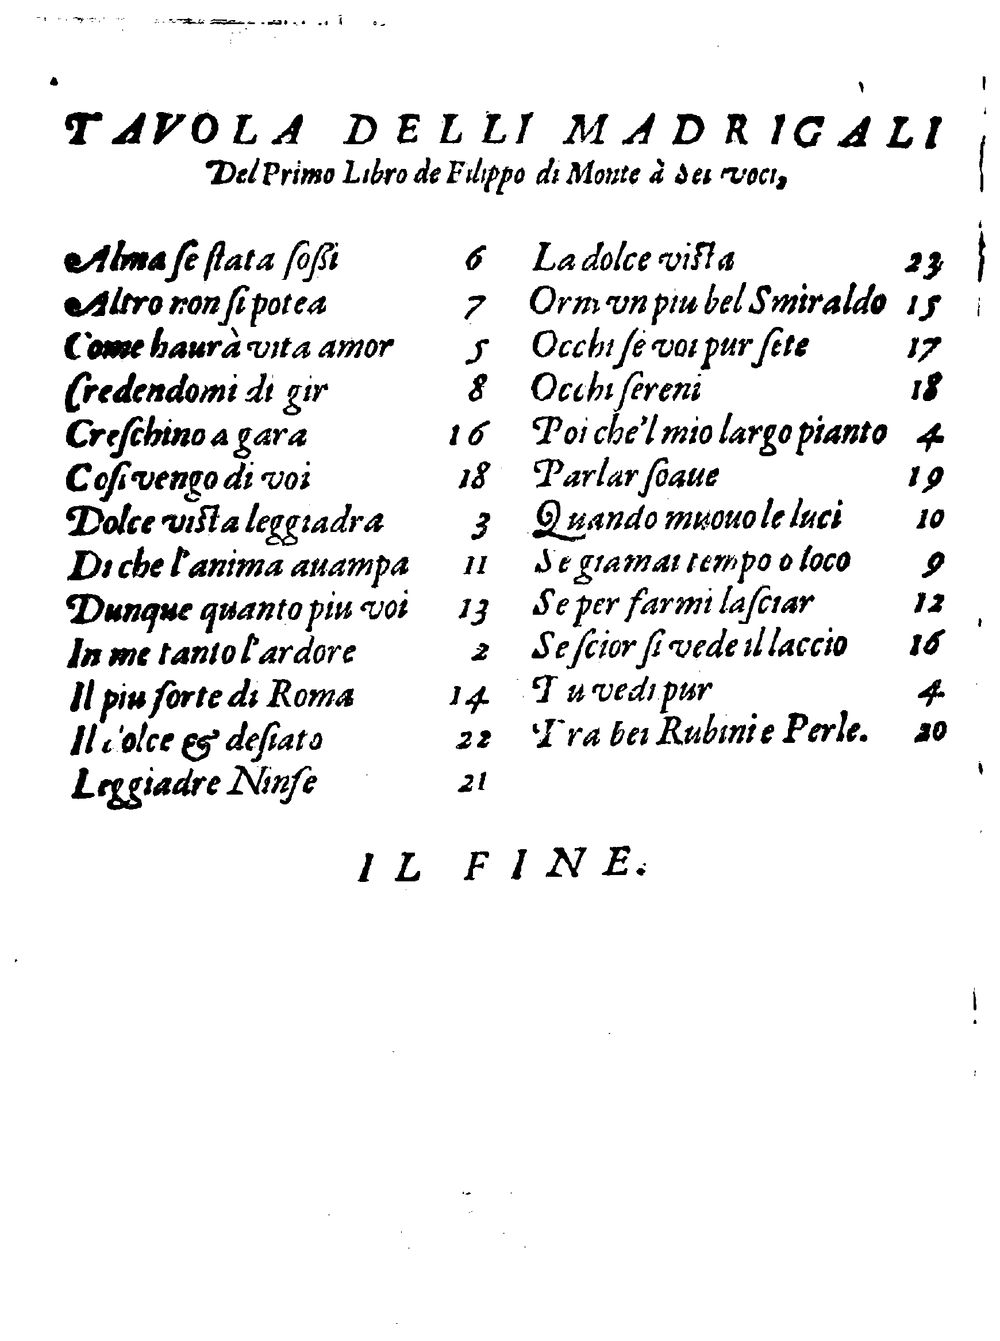 TAVOLA DELLI MADRIGALI
Del Primo Libro de Filippo di Monte à Sei voci,
Alma se ſtata foſſi 6
Altro non ſi potea 7
Come haurà vita amor 5
Credendomi di gir 8
Creſchino a gara 16
Coſi vengo di voi 18
Dolce viſta leggiadra 3
Di che l'anima auampa 11
Dunque quanto piu voi 13
In me tanto l'ardore 2
Il piu forte di Roma 14
Il dolce & deſiato 22
Leggiadre Ninfe 21
La dolce viſta 23
Or m vn piu bel Smiraldo 15
Occhi ſe voi pur ſete 17
Occhi ſereni 18
Poi che'l mio largo pianto 4
Parlar ſoaue 19
Quando muouo le luci 10
Se giamai tempo o loco 9
Se per farmi laſciar 12
Se ſcior ſi vede il laccio 16
Tu vedi pur 4
Tra bei Rubini e Perle. 20
IL FINE.